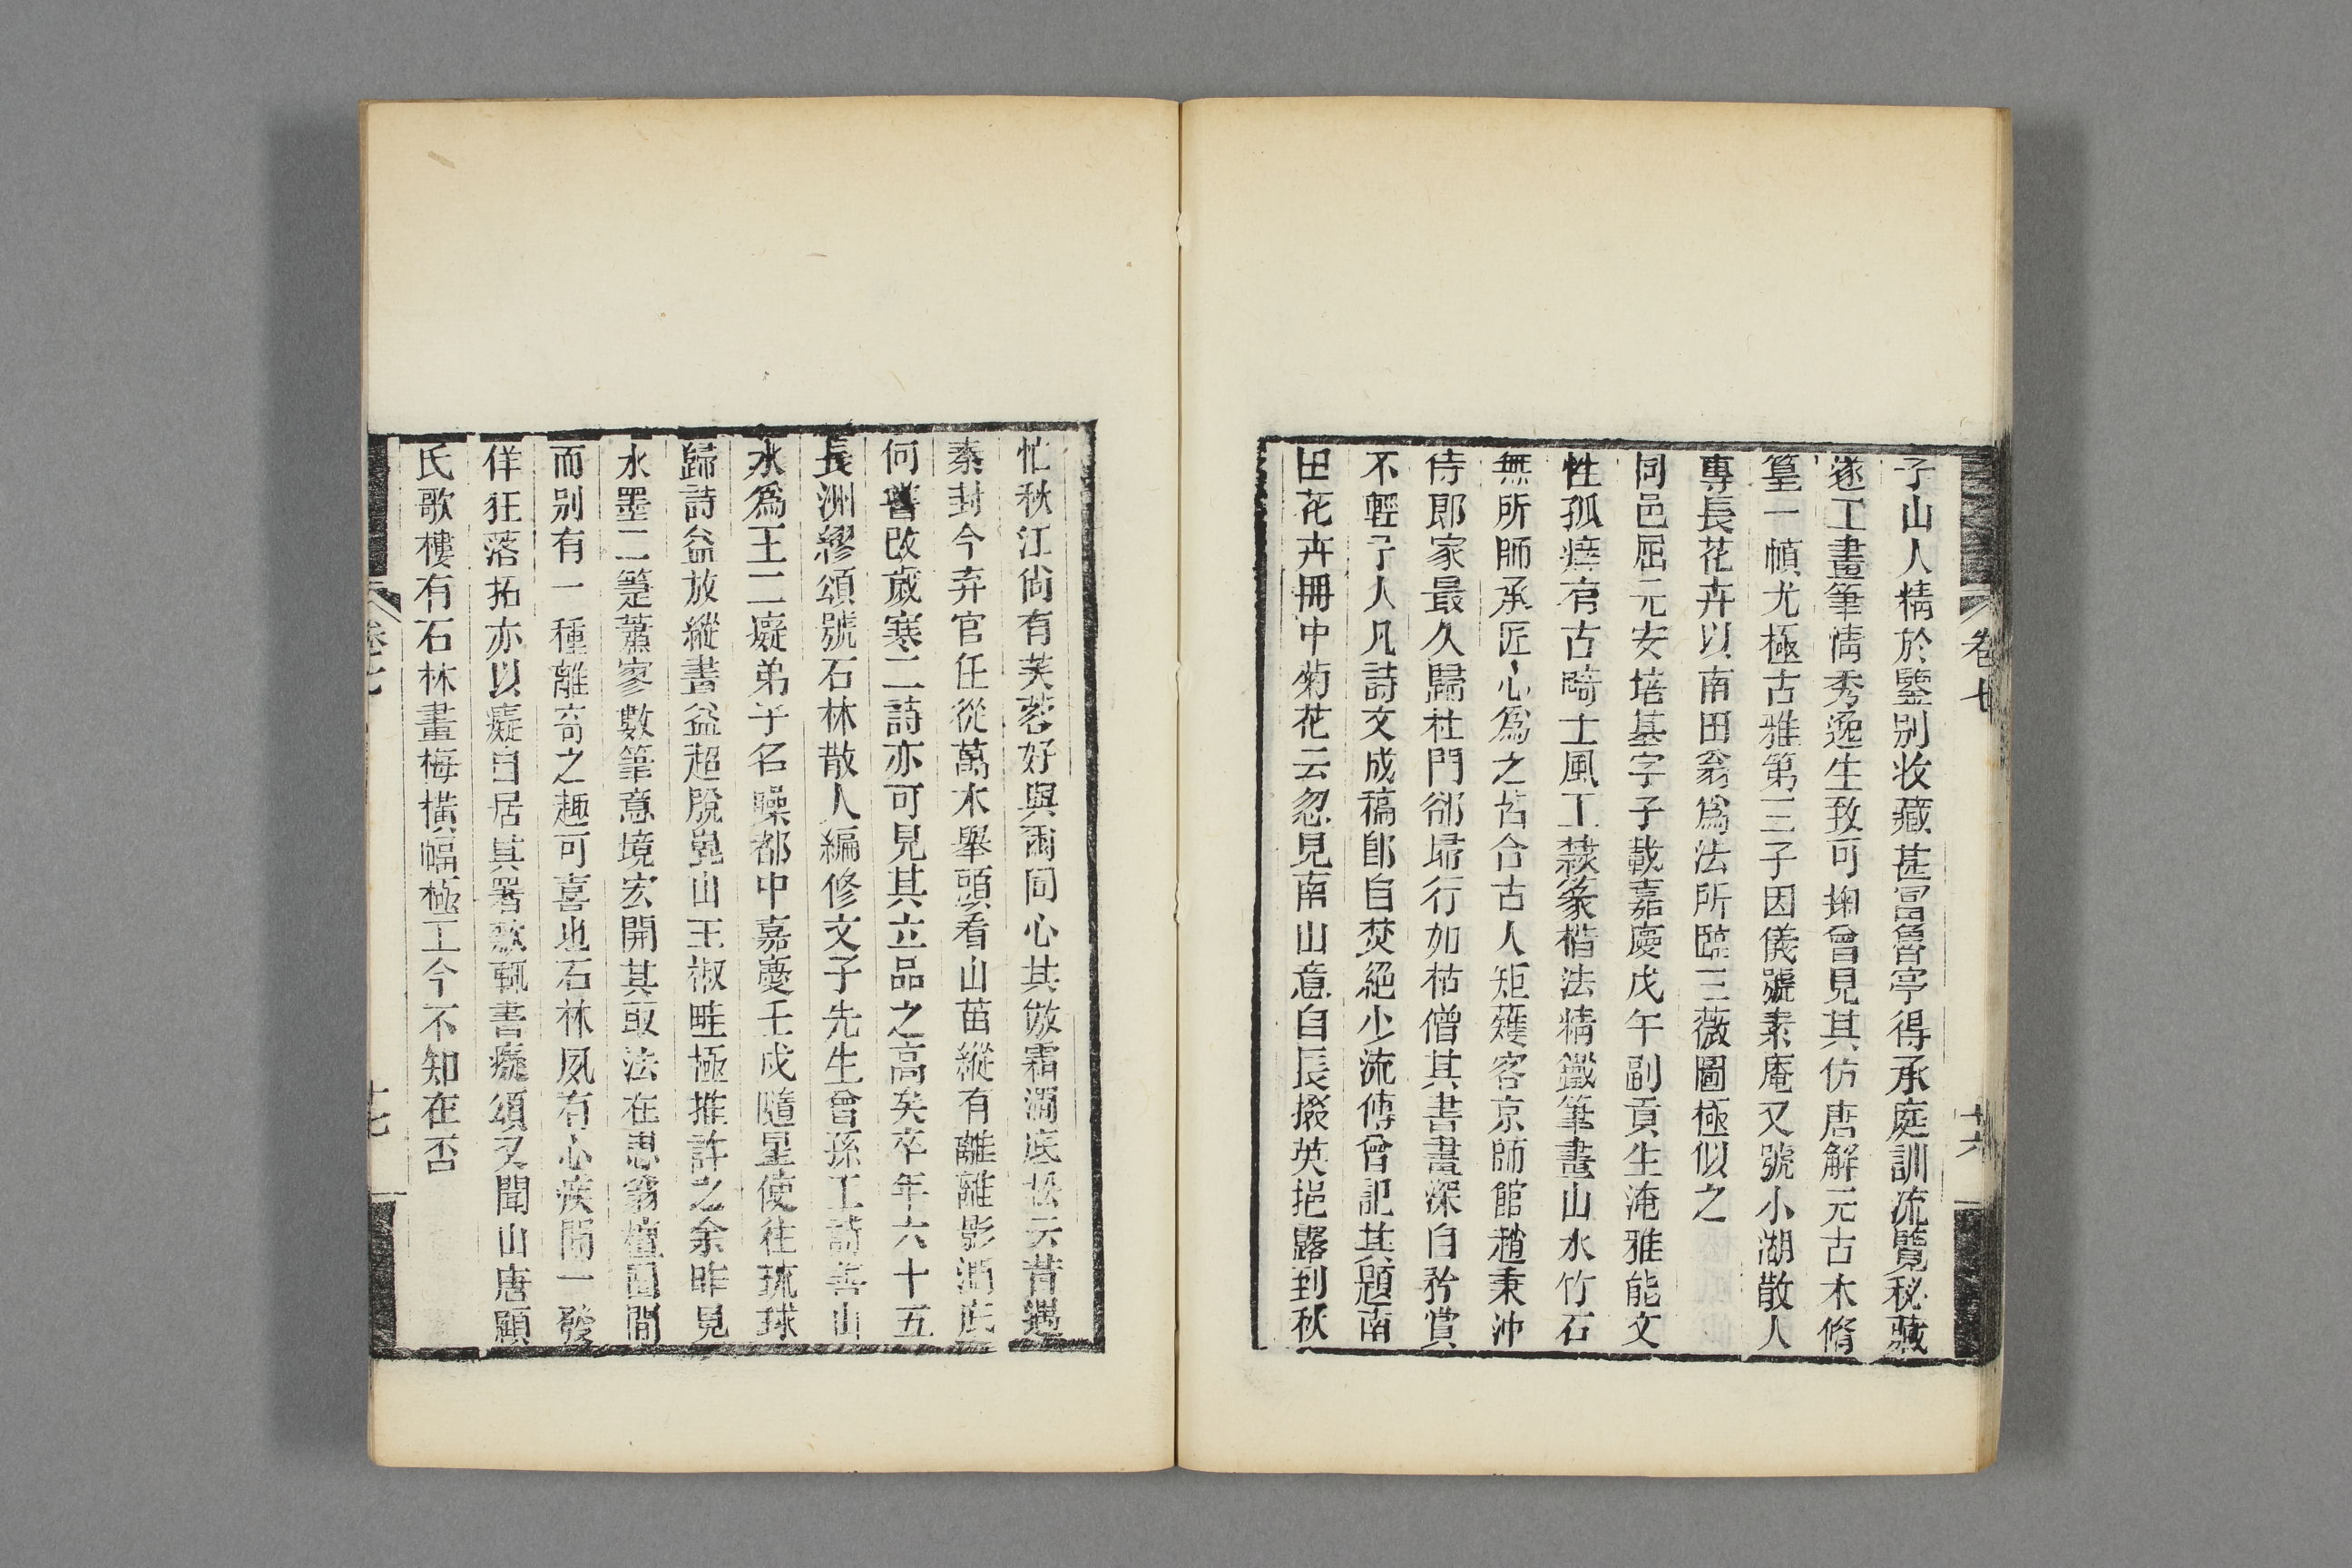 子山人精於鑒别收藏甚富魯亭得承庭訓流覽秘藏
遂工畫筆情秀逸生致可掬曾見其仿唐解元古木脩
篁一幀尤極古雅第三子因儀號素庵又號小湖散人
專長花卉以南田翁爲法所臨三薇圖極似之
同邑屈元安培基字子載嘉慶戊午副貢生淹雅能文
性孤癖有古畸士風工隸篆楷法精鐵筆畫山水竹石
無所師承匠心爲之苔合古人矩矱客京師館趙秉沖
侍郎家最久歸杜門郤埽行如枯僧其書畫深自矜賞
不輕予人凡詩文成稿卽自焚絕少流傳曾記其題南
田花卉冊中菊花云忽見南山意自長掇英挹露到秋
卷七
十六
忙秋江尙有芙蓉好與爾同心其傲霜澗底松云昔遇
秦封今弃官任從萬木舉頭看山苗縱有離離影澗底
何嘗改歲寒二詩亦可見其立品之高矣卒年六十五
長洲繆頌號石林散人編修文子先生曾孫工詩善山
水爲王二癡弟子名噪都中嘉慶壬戌隨星使往琉球
歸詩益放縱畫益超脫嵬山王椒畦極推許之余昨見
水墨二箑蕭寥數筆意境宏開其取法在思翁檀園間
而别有一種離奇之趣可喜也石林夙有心疾間一發
佯狂落拓亦以癡自居其署款輒書癡頌又聞山唐顧
氏歌樓有石林畫梅橫幅極工今不知在否
卷七
十七